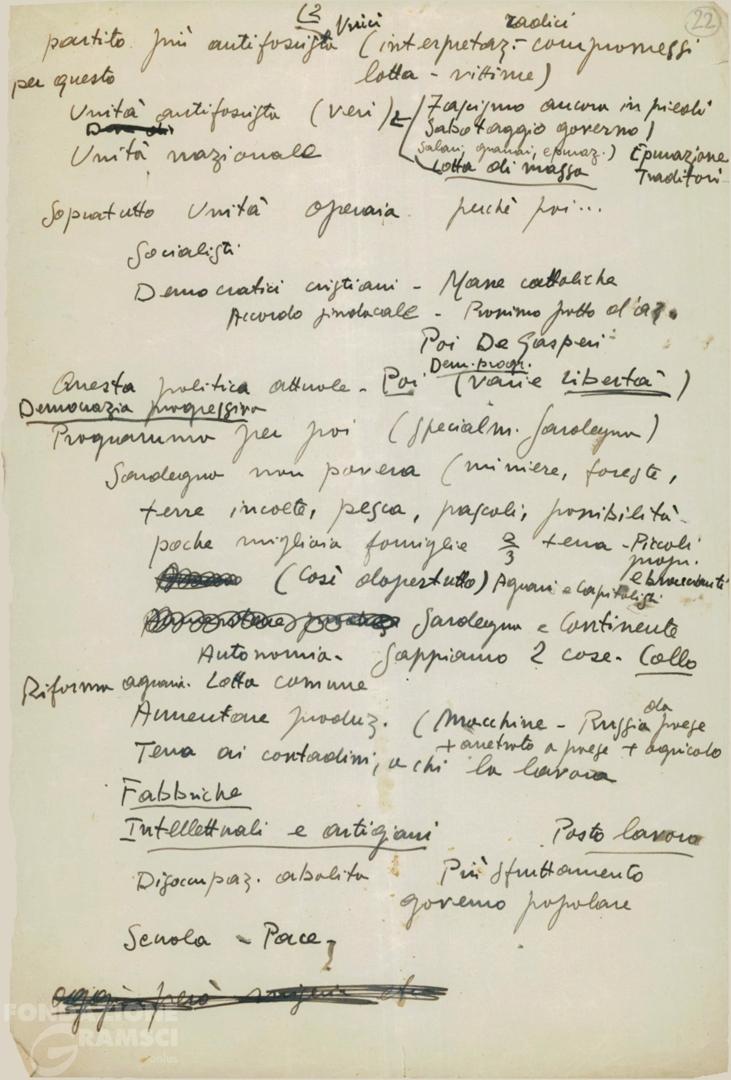 (2
22
Unici radici
partito più antifascista (interpretaz. - compromessi
per questo lotta - vittime)
Unità antifascista (veri) ← Fascismo ancora in piedi
Sabotaggio governo)
Unità nazionale Salari, granai, epuraz.) Epurazione
Lotta di massa Traditori -
Sopratutto Unità operaia. perchè poi...
Socialisti
Democratici cristiani - Masse cattoliche
Accordo sindacale - Prossimo patto d'az.
Poi De Gasperi
Dem. progr.
Questa politica attuale - Poi (varie libertà)
Democrazia progressiva
Programma per poi (specialm. Sardegna)
Sardegna non povera (miniere, foreste,
terre incolte, pesca, pascoli, possibilità -
poche migliaia famiglie 2/3 terra - Piccoli
propr.
e braccianti
(Così dapertutto) Agrari e capitalisti
Sardegna e Continente
Autonomia - Sappiamo 2 cose. Collo
Riforma agraria. Lotta comune
Aumentare produz. (Macchine - Russia da paese
+ arretrato a paese + agricolo
Terra ai contadini, a chi la lavora
Fabbriche
Intellettuali e artigiani Posto lavoro
Disoccupaz. abolita Più sfruttamento
governo popolare
Scuola - Pace -
FONDAZIONE
GRAMSCI
onlus